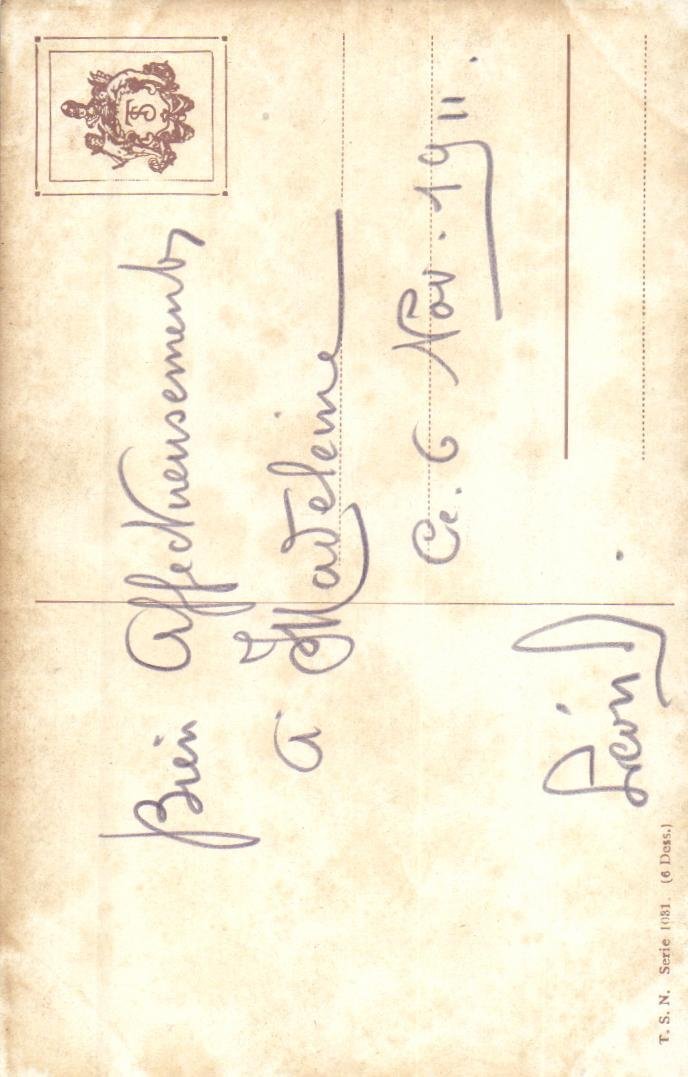 Bien Affectueusement
à Madeleine
Ce. 6 Nov. 1911.
Léon D
T. S. N. Serie 1031. (6 Dess.)